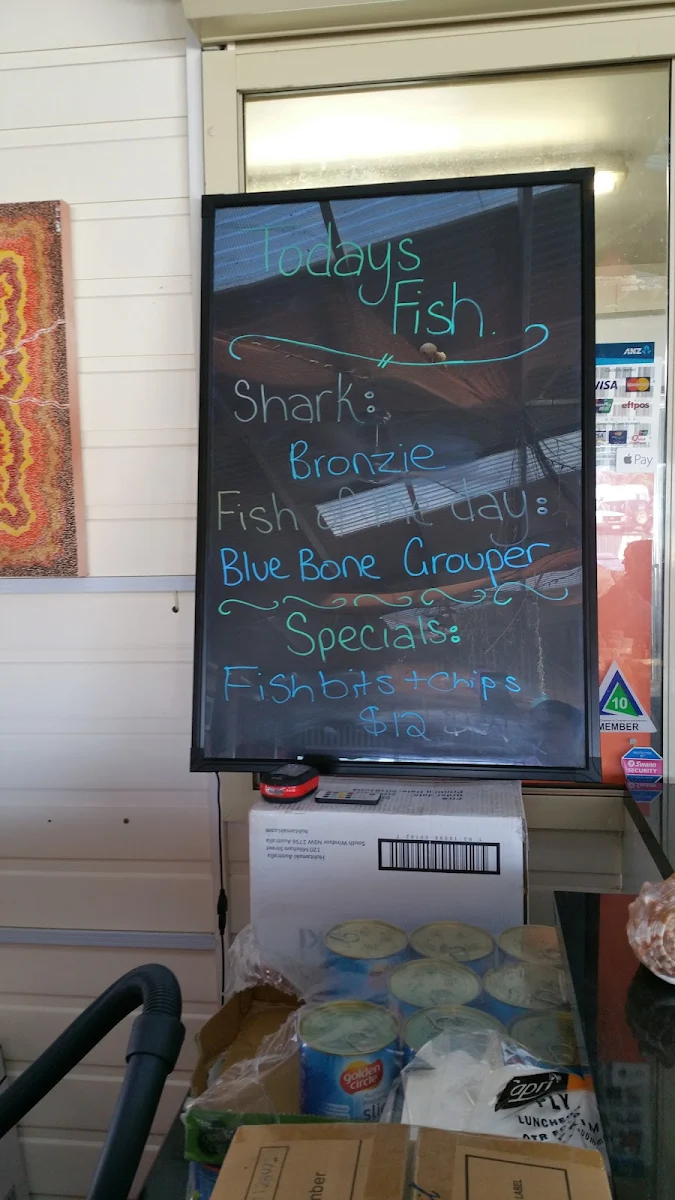 Todays
Fish.
Shark:
Bronzie
Fish of the day:
Blue Bone Grouper
Specials:
Fishbits + chips
$12
ANZ
VISA
eftpos
Pay
10
MEMBER
Swann
SECURITY
Huhtamaki Australia
120 Milsham Street
South Windsor NSW 2756 Australia
huhtamaki.com
golden
circle
sli
capri
PLY
LUNCHEON